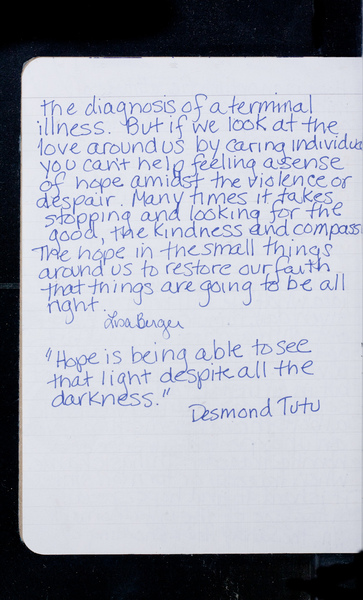 the diagnosis of a terminal
illness. But if we look at the
love around us by caring individua
you can't help feeling a sense
of hope amidst the violence or
despair. Many times it takes
stopping and looking for the
good, the kindness and compass
The hope in the small things
around us to restore our faith
that things are going to be all
right.
Lisa Berger
"Hope is being able to see
that light despite all the
darkness."
Desmond Tutu